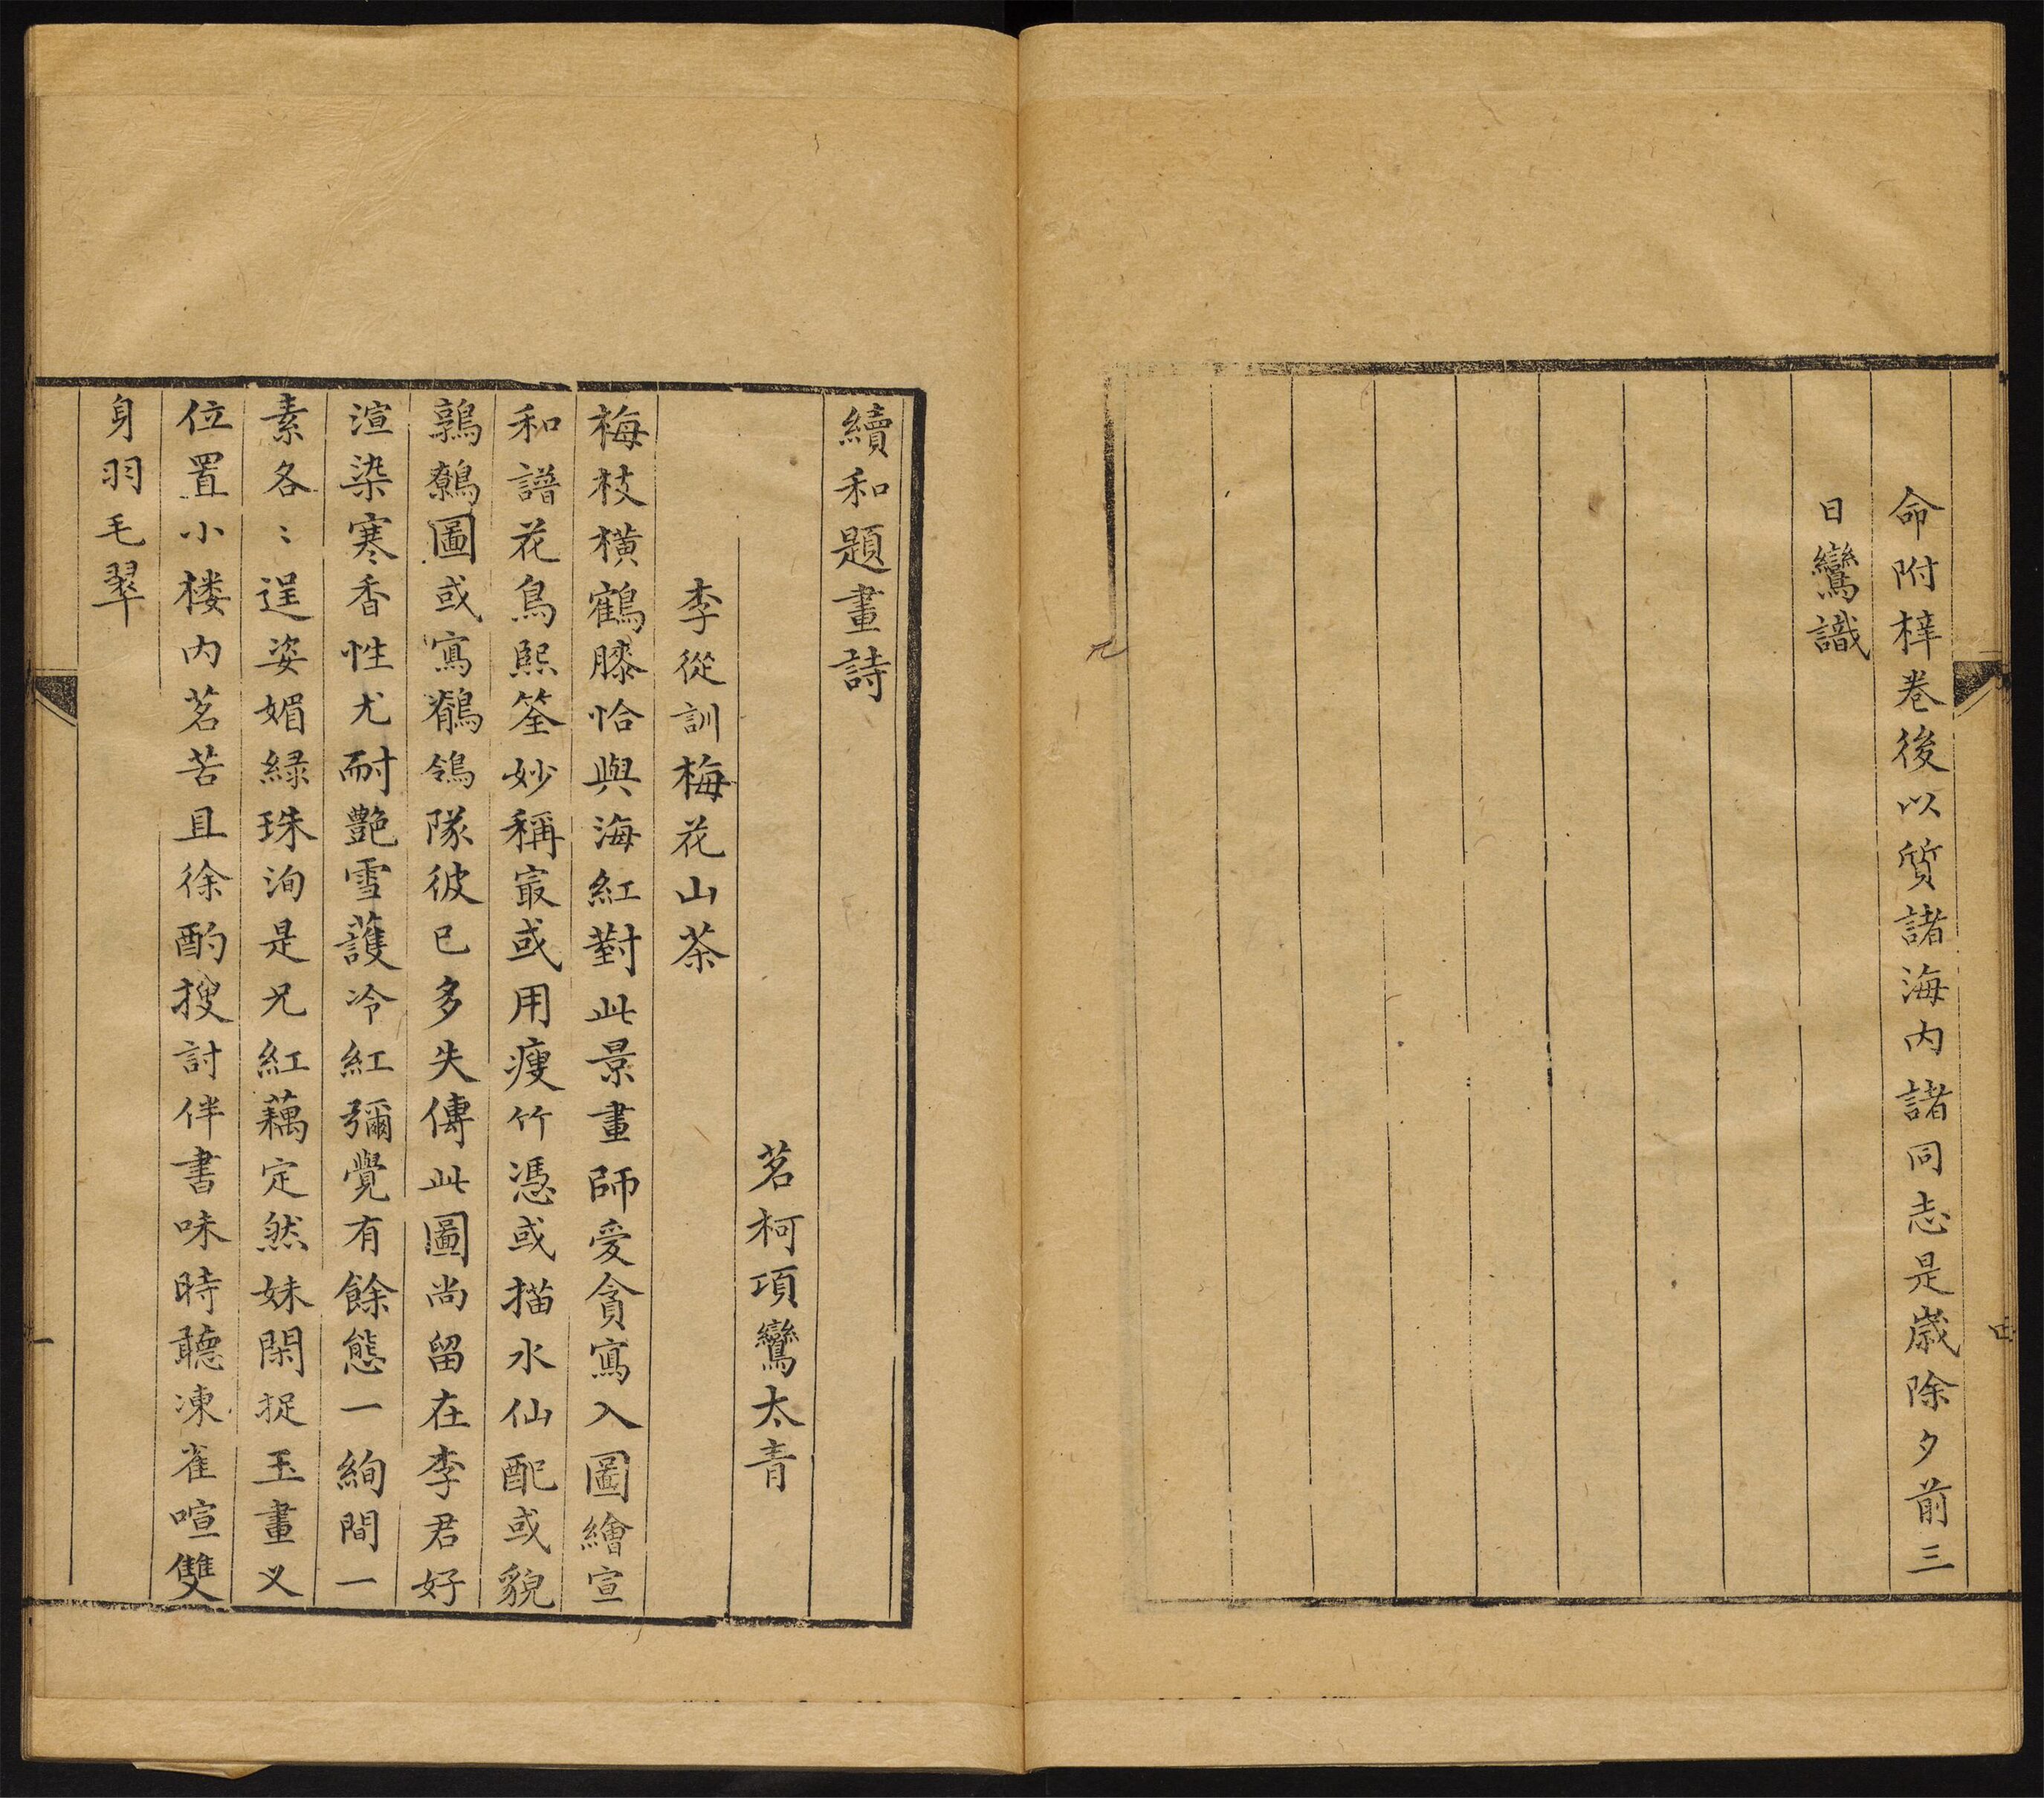 命附梓卷後以質諸海内諸同志是歲除夕前三
日鸞識
四
續和題畫詩
茗柯項鸞太青
李從訓梅花山茶
梅枝橫鶴膝恰與海紅對此景畫師愛貪寫入圖繪宣
和譜花鳥熙筌妙稱冣或用瘦竹憑或描水仙配或貌
鶉鷯圖或寫鶺鴒隊彼已多失傳此圖尚留在李君好
渲染寒香性尤耐艷雪護冷紅彌覺有餘態一絢間一
素各〻逞姿媚緑珠洵是兄紅藕定然妹閑捉玉畫叉
位置小楼内茗苦且徐酌搜討伴書味時聽凍雀喧雙
身羽毛翠
一